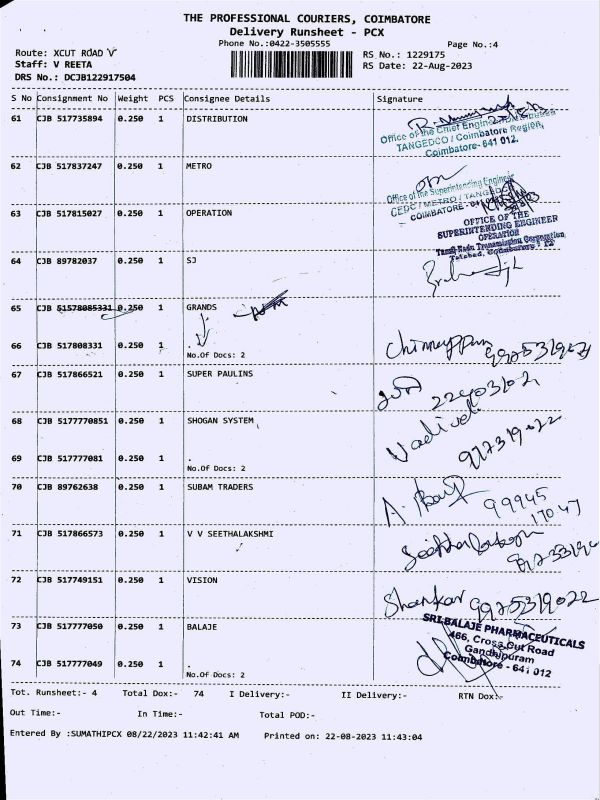 THE PROFESSIONAL COURIERS, COIMBATORE
Delivery Runsheet - PCX
Phone No.:0422-3505555
Page No.:4
Route: XCUT ROAD 'V'
Staff: V REETA
DRS No.: DCJB122917504
RS No.: 1229175
RS Date: 22-Aug-2023
S No Consignment No Weight PCS Consignee Details Signature
61 CJB 517735894 0.250 1 DISTRIBUTION
Office of the Chief Engineer
TANGEDCO / Coimbatore Region,
Coimbatore- 641 012.
62 CJB 517837247 0.250 1 METRO
Office of the Superintending Engineer
CEDC / METRO / TANGEDCO
COIMBATORE
63 CJB 517815027 0.250 1 OPERATION
OFFICE OF THE
SUPERINTENDING ENGINEER
OPERATION
Tamil Nadu Transmission Corporation
Tatabad, Coimbatore - 12
64 CJB 89782037 0.250 1 SJ
65 CJB 51578085331 0.250 1 GRANDS
66 CJB 517808331 0.250 1 .
No.Of Docs: 2
67 CJB 517866521 0.250 1 SUPER PAULINS
68 CJB 5177770851 0.250 1 SHOGAN SYSTEM
Vadivel
69 CJB 517777081 0.250 1 .
No.Of Docs: 2
70 CJB 89762638 0.250 1 SUBAM TRADERS
99945
17047
71 CJB 517866573 0.250 1 V V SEETHALAKSHMI
72 CJB 517749151 0.250 1 VISION
Shankar 9975319022
73 CJB 517777050 0.250 1 BALAJE
SRI BALAJE PHARMACEUTICALS
466, Cross Cut Road
Gandhipuram
Coimbatore - 641 012
74 CJB 517777049 0.250 1 .
No.Of Docs: 2
Tot. Runsheet:- 4 Total Dox:- 74 I Delivery:- II Delivery:- RTN Dox:-
Out Time:- In Time:- Total POD:-
Entered By :SUMATHIPCX 08/22/2023 11:42:41 AM Printed on: 22-08-2023 11:43:04